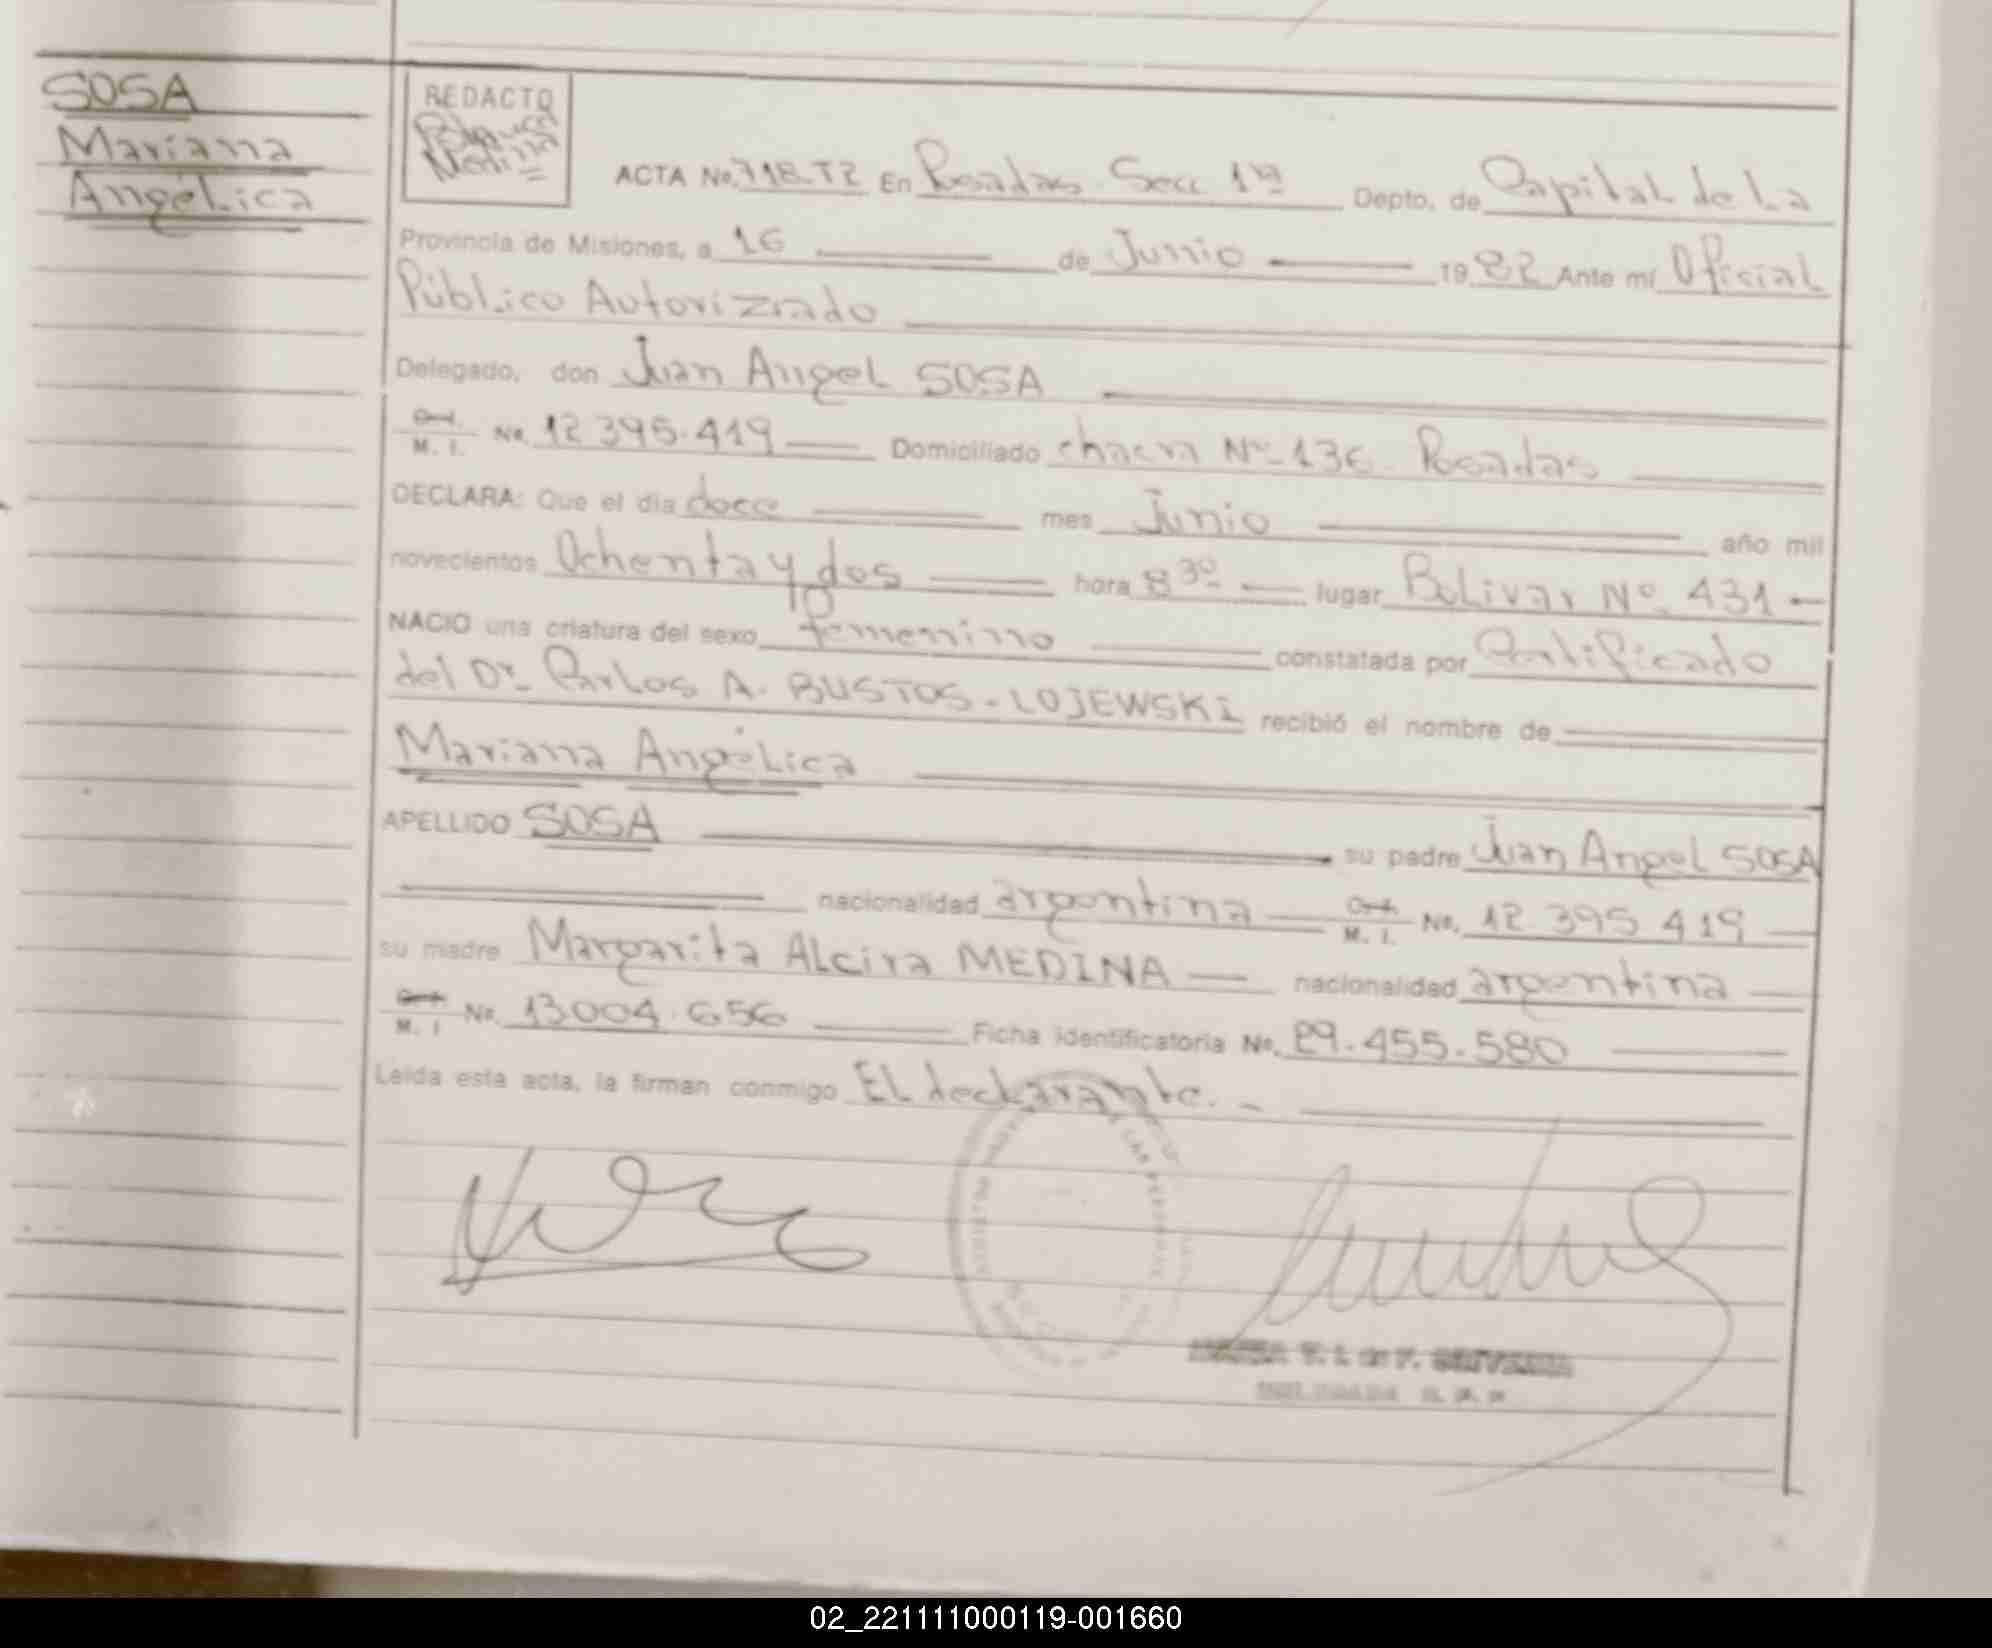 SOSA
Mariana
Angélica
REDACTO
Medina
ACTA No. 718-T2 En Posadas Secc 1ra Depto. de Capital de La
Provincia de Misiones, a 16 de Junio 1982 Ante mí Oficial
Público Autorizado
Delegado, don Juan Angel SOSA
M. I. No. 12 395.419 Domiciliado chacra No 136 Posadas
DECLARA: Que el día doce mes Junio año mil
novecientos Ochenta y dos hora 8 30 lugar Bolivar No. 431
NACIO una criatura del sexo femenino constatada por Certificado
del Dr. Carlos A. BUSTOS-LOJEWSKI recibió el nombre de
Mariana Angélica
APELLIDO SOSA su padre Juan Angel SOSA
nacionalidad argentina M. I. No. 12.395 419
su madre Margarita Alcira MEDINA nacionalidad argentina
M. I No. 13004.656 Ficha identificatoria No. 29.455.580
Leída esta acta, la firman conmigo El declarante.
02_221111000119-001660